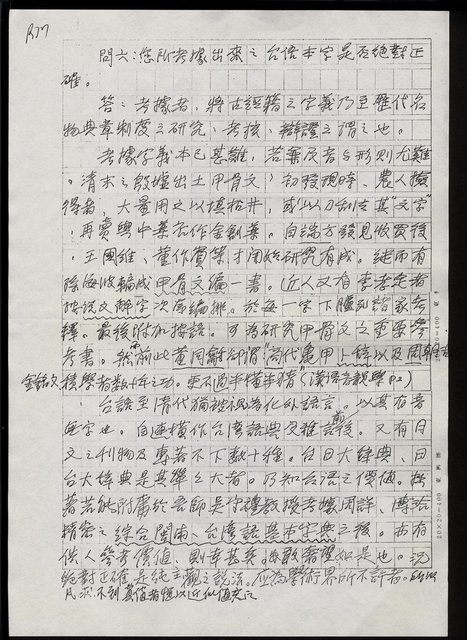 R77
問六：您所考據出來之台語本字是否絕對正
確。
答：考據者，將古經籍之字義乃至歷代名
物典章制度之研究、考核、辯證之謂之也。
考據字義本已甚難，若兼及音與形則尤難
。清末之殷墟出土甲骨文，初發現時、農人檢
得者，大量用之以填枯井，或以刀刮去其"文字"
，再賣與中藥
王國維、董作賓等才開始研究有成。繼而有
孫海波編成甲骨文編一書。近人又有李孝定者
按說文解字次第編排。於每一字下臚列諸家考
釋。最後附加按語。可為研究甲骨文之重要參
考書。然前此董同龢卻謂"商代龜甲上辭以及周朝
金銘文積學者數十年之功。 (漢語音韻學P2)
台語至清代猶被視為化外語言。以其有音
無字也。自連橫作台灣語典及雅言後。又有日
文之刊物及專著不下數十種。台日大辭典、日
台大辭典是其犖之大者。乃知台語之價值。拙
著若能附屬於吾師吳守禮教授考據周詳、博洽
精密之綜合閩南、台灣語基本字典之後。亦有
供人參考價值、則幸甚矣。 況
絕對正確是純主觀之說法。應為學術界所不許者。
凡求不到真值者慣以近似值充之
20×20=400